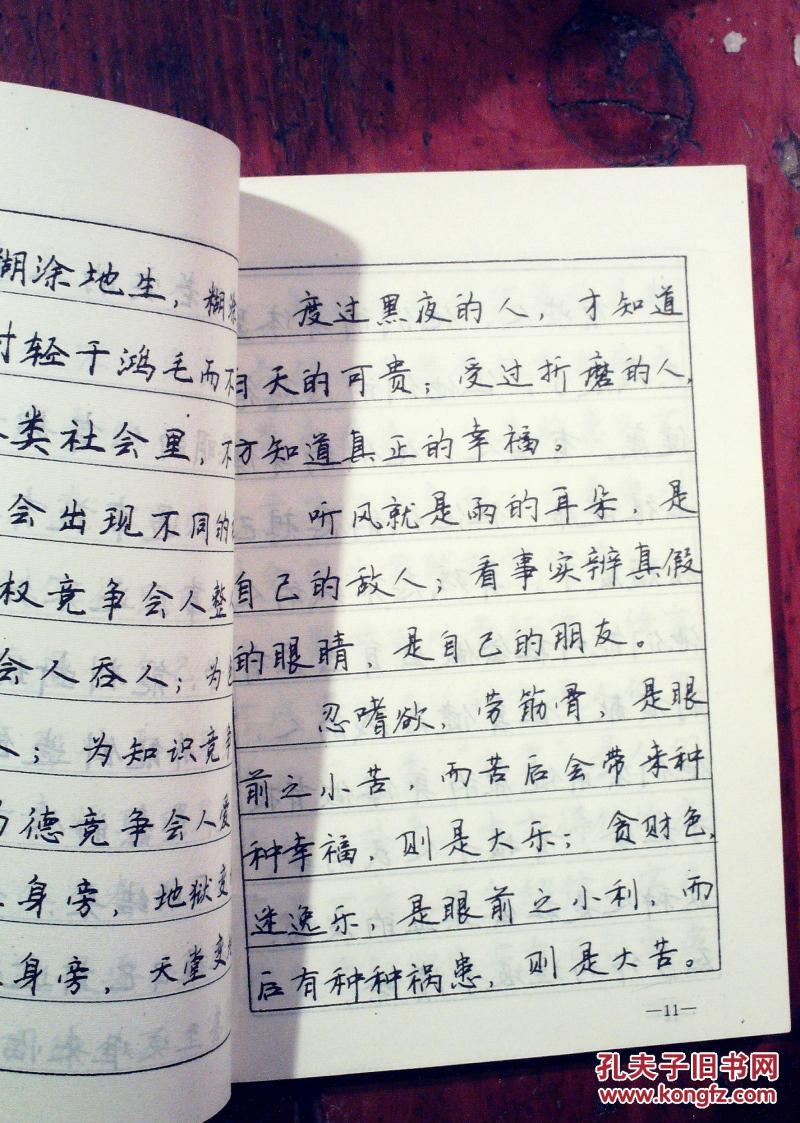 糊涂地生，糊
轻于鸿毛而不
类社会里，不
会出现不同的
权竟争会人整人
会人吞人；为
；为知识竟争
德竟争会人爱
身旁，地狱变
身旁，天堂变
度过黑夜的人，才知道
白天的可贵；受过折磨的人，
方知道真正的幸福。
听风就是雨的耳朵，是
自己的敌人；看事实辨真假
的眼睛，是自己的朋友。
忍嗜欲，劳筋骨，是眼
前之小苦，而苦后会带来种
种幸福，则是大乐；贪财色，
迷逸乐，是眼前之小利，而
后有种种祸患，则是大苦。
—11—
孔夫子旧书网
www.kongfz.com